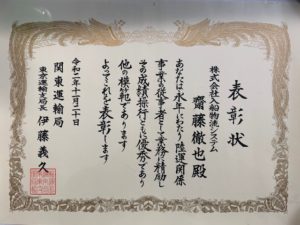 表彰状
株式会社入船物流システム
齋藤徹也殿
あなたは永年にわたり陸運関係
事業の従事者として業務に精励し
その成績操行ともに優秀であり
他の模範であります
よってこれを表彰します
令和二年十一月二十日
関東運輸局
東京運輸支局長 伊藤義久